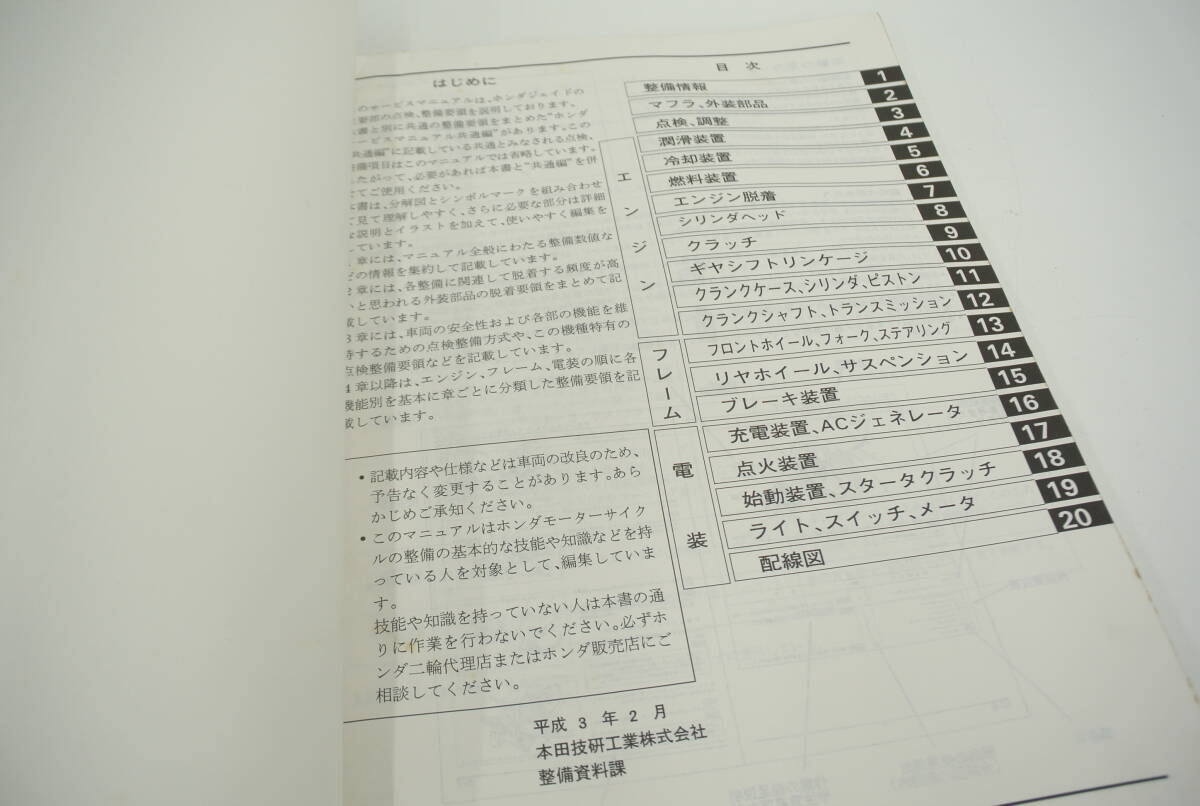 はじめに
のサービスマニュアルは、ホンダジェイドの
要部の点検、整備要領を説明しております。
書と別に共通の整備要領をまとめた“ホンダ
ービスマニュアル共通編”があります。この
共通編”に記載している共通とみなされる点検、
備項目はこのマニュアルでは省略しています。
たがって、必要があれば本書と“共通編”を併
てご使用ください。
書は、分解図とシンボルマークを組み合わせ
て見て理解しやすく、さらに必要な部分は詳細
な説明とイラストを加えて、使いやすく編集を
しています。
章には、マニュアル全般にわたる整備数値な
どの情報を集約して記載しています。
2章には、各整備に関連して脱着する頻度が高
いと思われる外装部品の脱着要領をまとめて記
載しています。
3章には、車両の安全性および各部の機能を維
持するための点検整備方式や、この機種特有の
点検整備要領などを記載しています。
4章以降は、エンジン、フレーム、電装の順に各
機能別を基本に章ごとに分類した整備要領を記
載しています。
・記載内容や仕様などは車両の改良のため、
予告なく変更することがあります。あら
かじめご承知ください。
・このマニュアルはホンダモーターサイク
ルの整備の基本的な技能や知識などを持
っている人を対象として、編集していま
す。
技能や知識を持っていない人は本書の通
りに作業を行わないでください。必ずホ
ンダ二輪代理店またはホンダ販売店にご
相談してください。
平成 3 年 2 月
本田技研工業株式会社
整備資料課
目 次
整備情報 1
マフラ、外装部品 2
点検、調整 3
エンジン
潤滑装置 4
冷却装置 5
燃料装置 6
エンジン脱着 7
シリンダヘッド 8
クラッチ 9
ギヤシフトリンケージ 10
クランクケース、シリンダ、ピストン 11
クランクシャフト、トランスミッション 12
フレーム
フロントホイール、フォーク、ステアリング 13
リヤホイール、サスペンション 14
ブレーキ装置 15
電装
充電装置、ACジェネレータ 16
点火装置 17
始動装置、スタータクラッチ 18
ライト、スイッチ、メータ 19
配線図 20